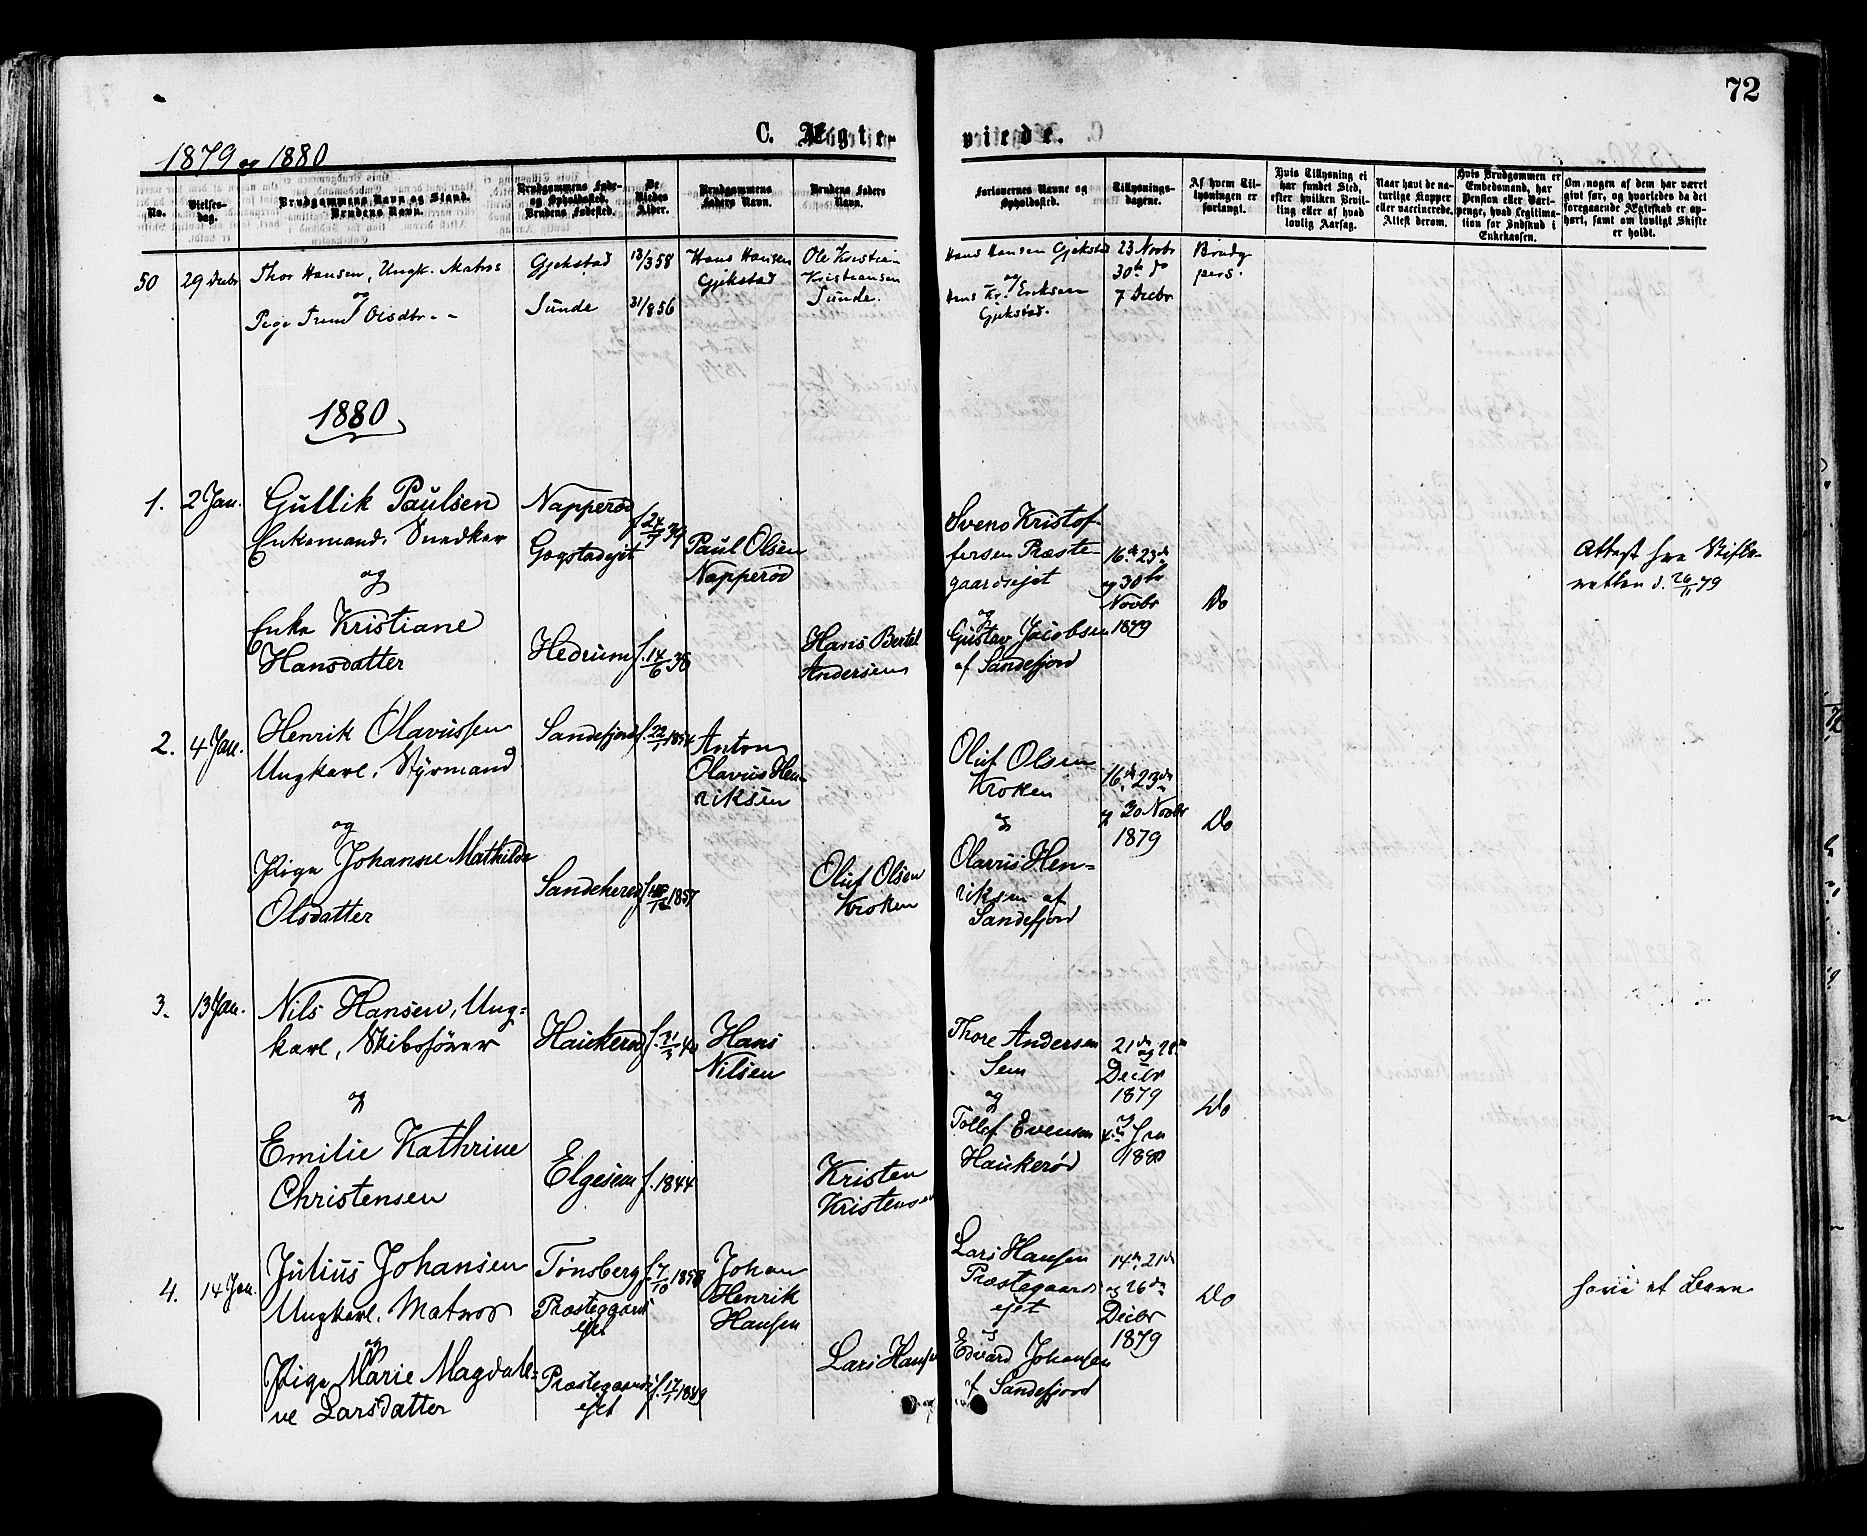 72
C. Ægteviede.
1879 og 1880
No.
Vielses-dag.
Brudgommens Navn og Stand.
Brudens Navn.
Brudgommens Føde-
og Opholdssted.
Brudens Fødested.
De
Viedes
Alder.
Brudgommens
Faders Navn.
Brudens Faders
Navn.
Forlovernes Navne og
Opholdssted.
Tillysnings-
dagene.
Af hvem Til-
lysningen er
forlangt.
Hvis Tillysning ei
har fundet Sted,
efter hvilken Bevil-
ling eller af hvad
lovlig Aarsag.
Naar havt de na-
turlige Kopper
eller vaccinerede.
Attest derom.
Hvis Brudgommen er
Embedsmand, har
Pension eller Vart-
penge, hvad Legitima-
tion for Indskud i
Enkekassen.
Om nogen af dem har været
givt før, og hvorledes da det
foregaaende Ægteskab er op-
hørt, samt om lovligt Skifte
er holdt.
50 29 Decbr Thor Hansen, Ungk. Matros
og
Pige Olsdtr.
Gjekstad
Sunde
13/3 58
31/8 56
Hans Hansen
Gjekstad
Ole Kristian
Kristiansen
Sunde.
Hans Hansen Gjekstad
og
Hans Kr. Eriksen
Gjekstad.
23 Novbr
30te do
7 Decbr
Brudg
pers.
1880
1. 2 Jan. Gullik Paulsen
Enkemand, Snedker
og
Enke Kristiane
Hansdatter
Napperød
Gogstadejet
Hedrum
f. 14/6 38
Paul Olsen
Napperød
Hans Bertel
Andersen
Svend Kristof-
fersen Præste-
gaardsejet
og
Gustav Jacobsen
af Sandefjord
16de 23de
og 30te
Novbr
1879
Do
Attest fra Skifte-
retten d. 26/11 79
2. 4 Jan. Henrik Olavussen
Ungkarl, Styrmand
og
Pige Johanne Mathilde
Olsdatter
Sandefjord
Sandeherred
f. 22/1 1854
1857
Anton
Olavus Hen-
riksen
Oluf Olsen
Kroken
Oluf Olsen
Kroken
og
Olavus Hen-
riksen af
Sandefjord
16de 23de
og 30 Novbr
1879
Do
3. 13 Jan. Nils Hansen, Ung-
karl, Skibsfører
og
Emilie Kathrine
Christensen
Haukerød
Elgesem
f. 1844
Hans
Nilsen
Kristen
Kristensen
Thore Andersen
Sem
og
Tollef Evensen
Haukerød
21de og 28de
Decbr
1879
og
4de Jan
1880
Do
4. 14 Jan. Julius Johansen
Ungkarl, Matros
og
Pige Marie Magdale-
ne Larsdatter
Tønsberg
Præstegaards
ejet
Præstegaards
ejet
f. 17/1 1849
Johan
Henrik
Hansen
Lars Hansen
Lars Hansen
Præstegaards
ejet
og
Edvard Johansen
af Sandefjord
14de, 21de
og 26de
Decbr
1879
Do
have et Barn